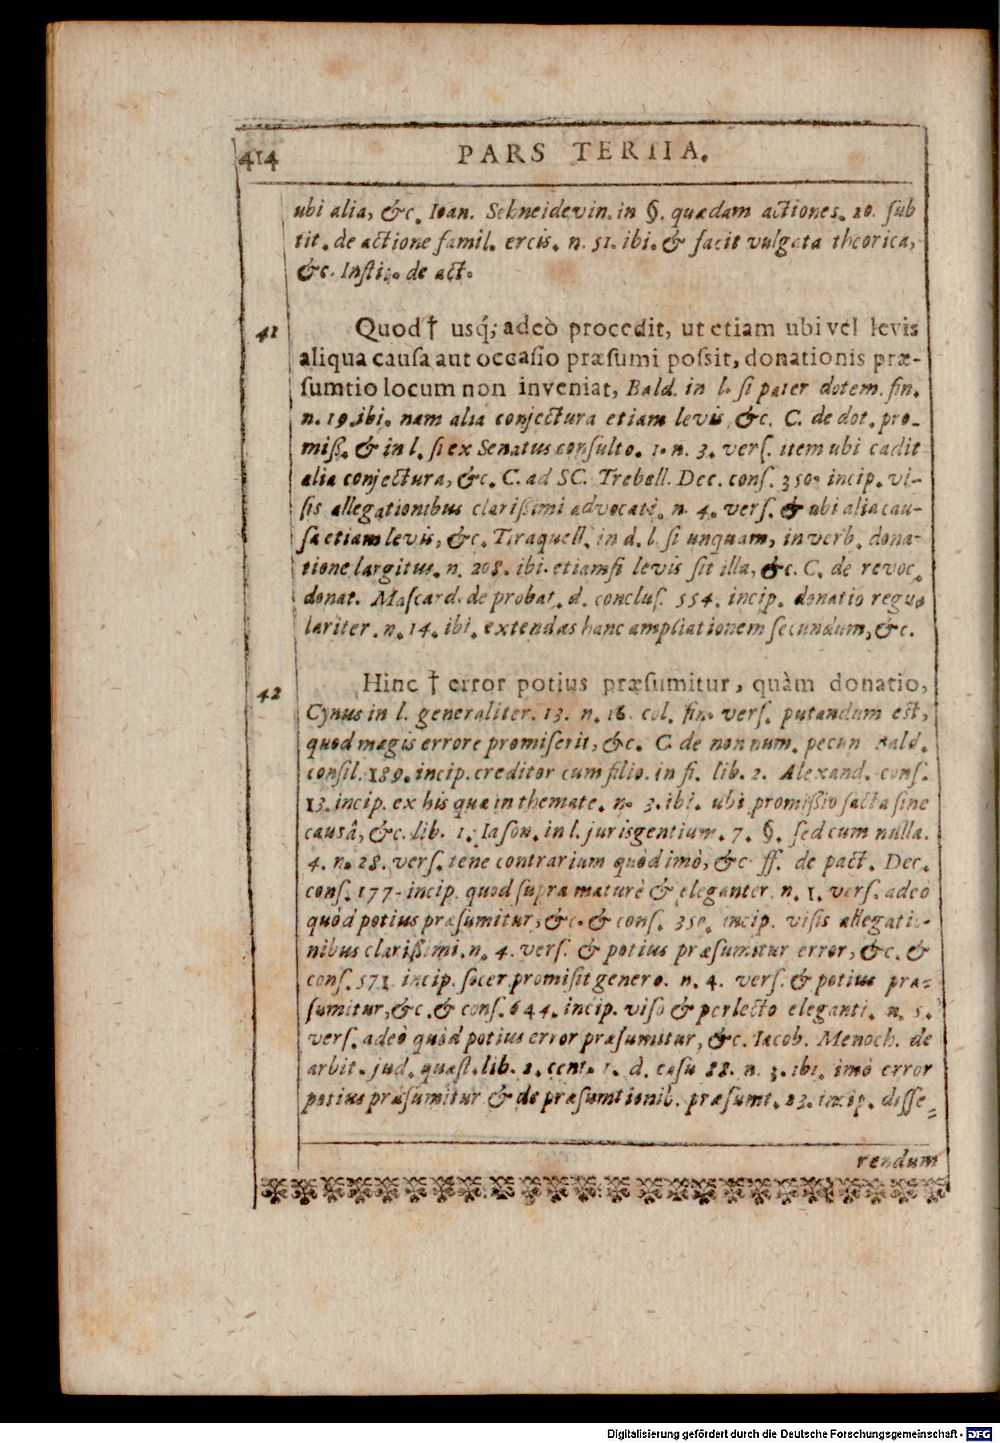 414
PARS TERTIA.
ubi alia, &c. Ioan. Schneidevin. in §. quædam actiones. 20. sub
tit. de actione famil. ercis. n. 51. ibi. & facit vulgata theorica,
&c. Instit. de act.
41
Quod † usq́; adeò procedit, ut etiam ubi vel levis
aliqua causa aut occasio præsumi possit, donationis præ-
sumtio locum non inveniat, Bald. in l. si pater dotem. fin.
n. 19. ibi. nam alia conjectura etiam levis &c. C. de dot. pro-
miß. & in l. si ex Senatus consulto. 1. n. 3. vers. item ubi cadit
alia conjectura, &c. C. ad SC. Trebell. Dec. cons. 350. incip. vi-
sis allegationibus clarißimi advocati. n. 4. vers. & ubi alia cau-
sa etiam levis, &c. Tiraquell. in d. l. si unquam, in verb. dona-
tione largitus. n. 208. ibi. etiamsi levis sit illa, &c. C. de revoc.
donat. Mascard. de probat. d. conclus. 554. incip. donatio regu-
lariter. n. 14. ibi. extendas hanc ampliationem secundum, &c.
42
Hinc † error potius præsumitur, quàm donatio,
Cynus in l. generaliter. 13. n. 16. col. fin. vers. putandum est,
quod magis errore promiserit, &c. C. de non num. pecun Bald.
consil. 189. incip. creditor cum filio. in fi. lib. 2. Alexand. cons.
13. incip. ex his quæ in themate. n. 3. ibi. ubi promißio facta sine
causâ, &c. lib. 1. Iason. in l. jurisgentium. 7. §. sed cum nulla.
4. n. 28. vers. tene contrarium quòd imò, &c ff. de pact. Dec.
cons. 177. incip. quod supra maturè & eleganter. n. 1. vers. adeò
quòd potius præsumitur, &c. & cons. 350. incip. visis allegatio-
nibus clarißimi. n. 4. vers. & potius præsumitur error, &c. &
cons. 571. incip. socer promisit genero. n. 4. vers. & potius præ-
sumitur, &c. & cons. 644. incip. viso & perlecto eleganti. n. 5.
vers. adeò quòd potius error præsumitur, &c. Iacob. Menoch. de
arbit. jud. quæst. lib. 2. cent. 1. d. casu 88. n. 3. ibi. imò error
potius præsumitur & de præsumtionib. præsumt. 23. incip. disse-
rendum
Digitalisierung gefördert durch die Deutsche Forschungsgemeinschaft - DFG